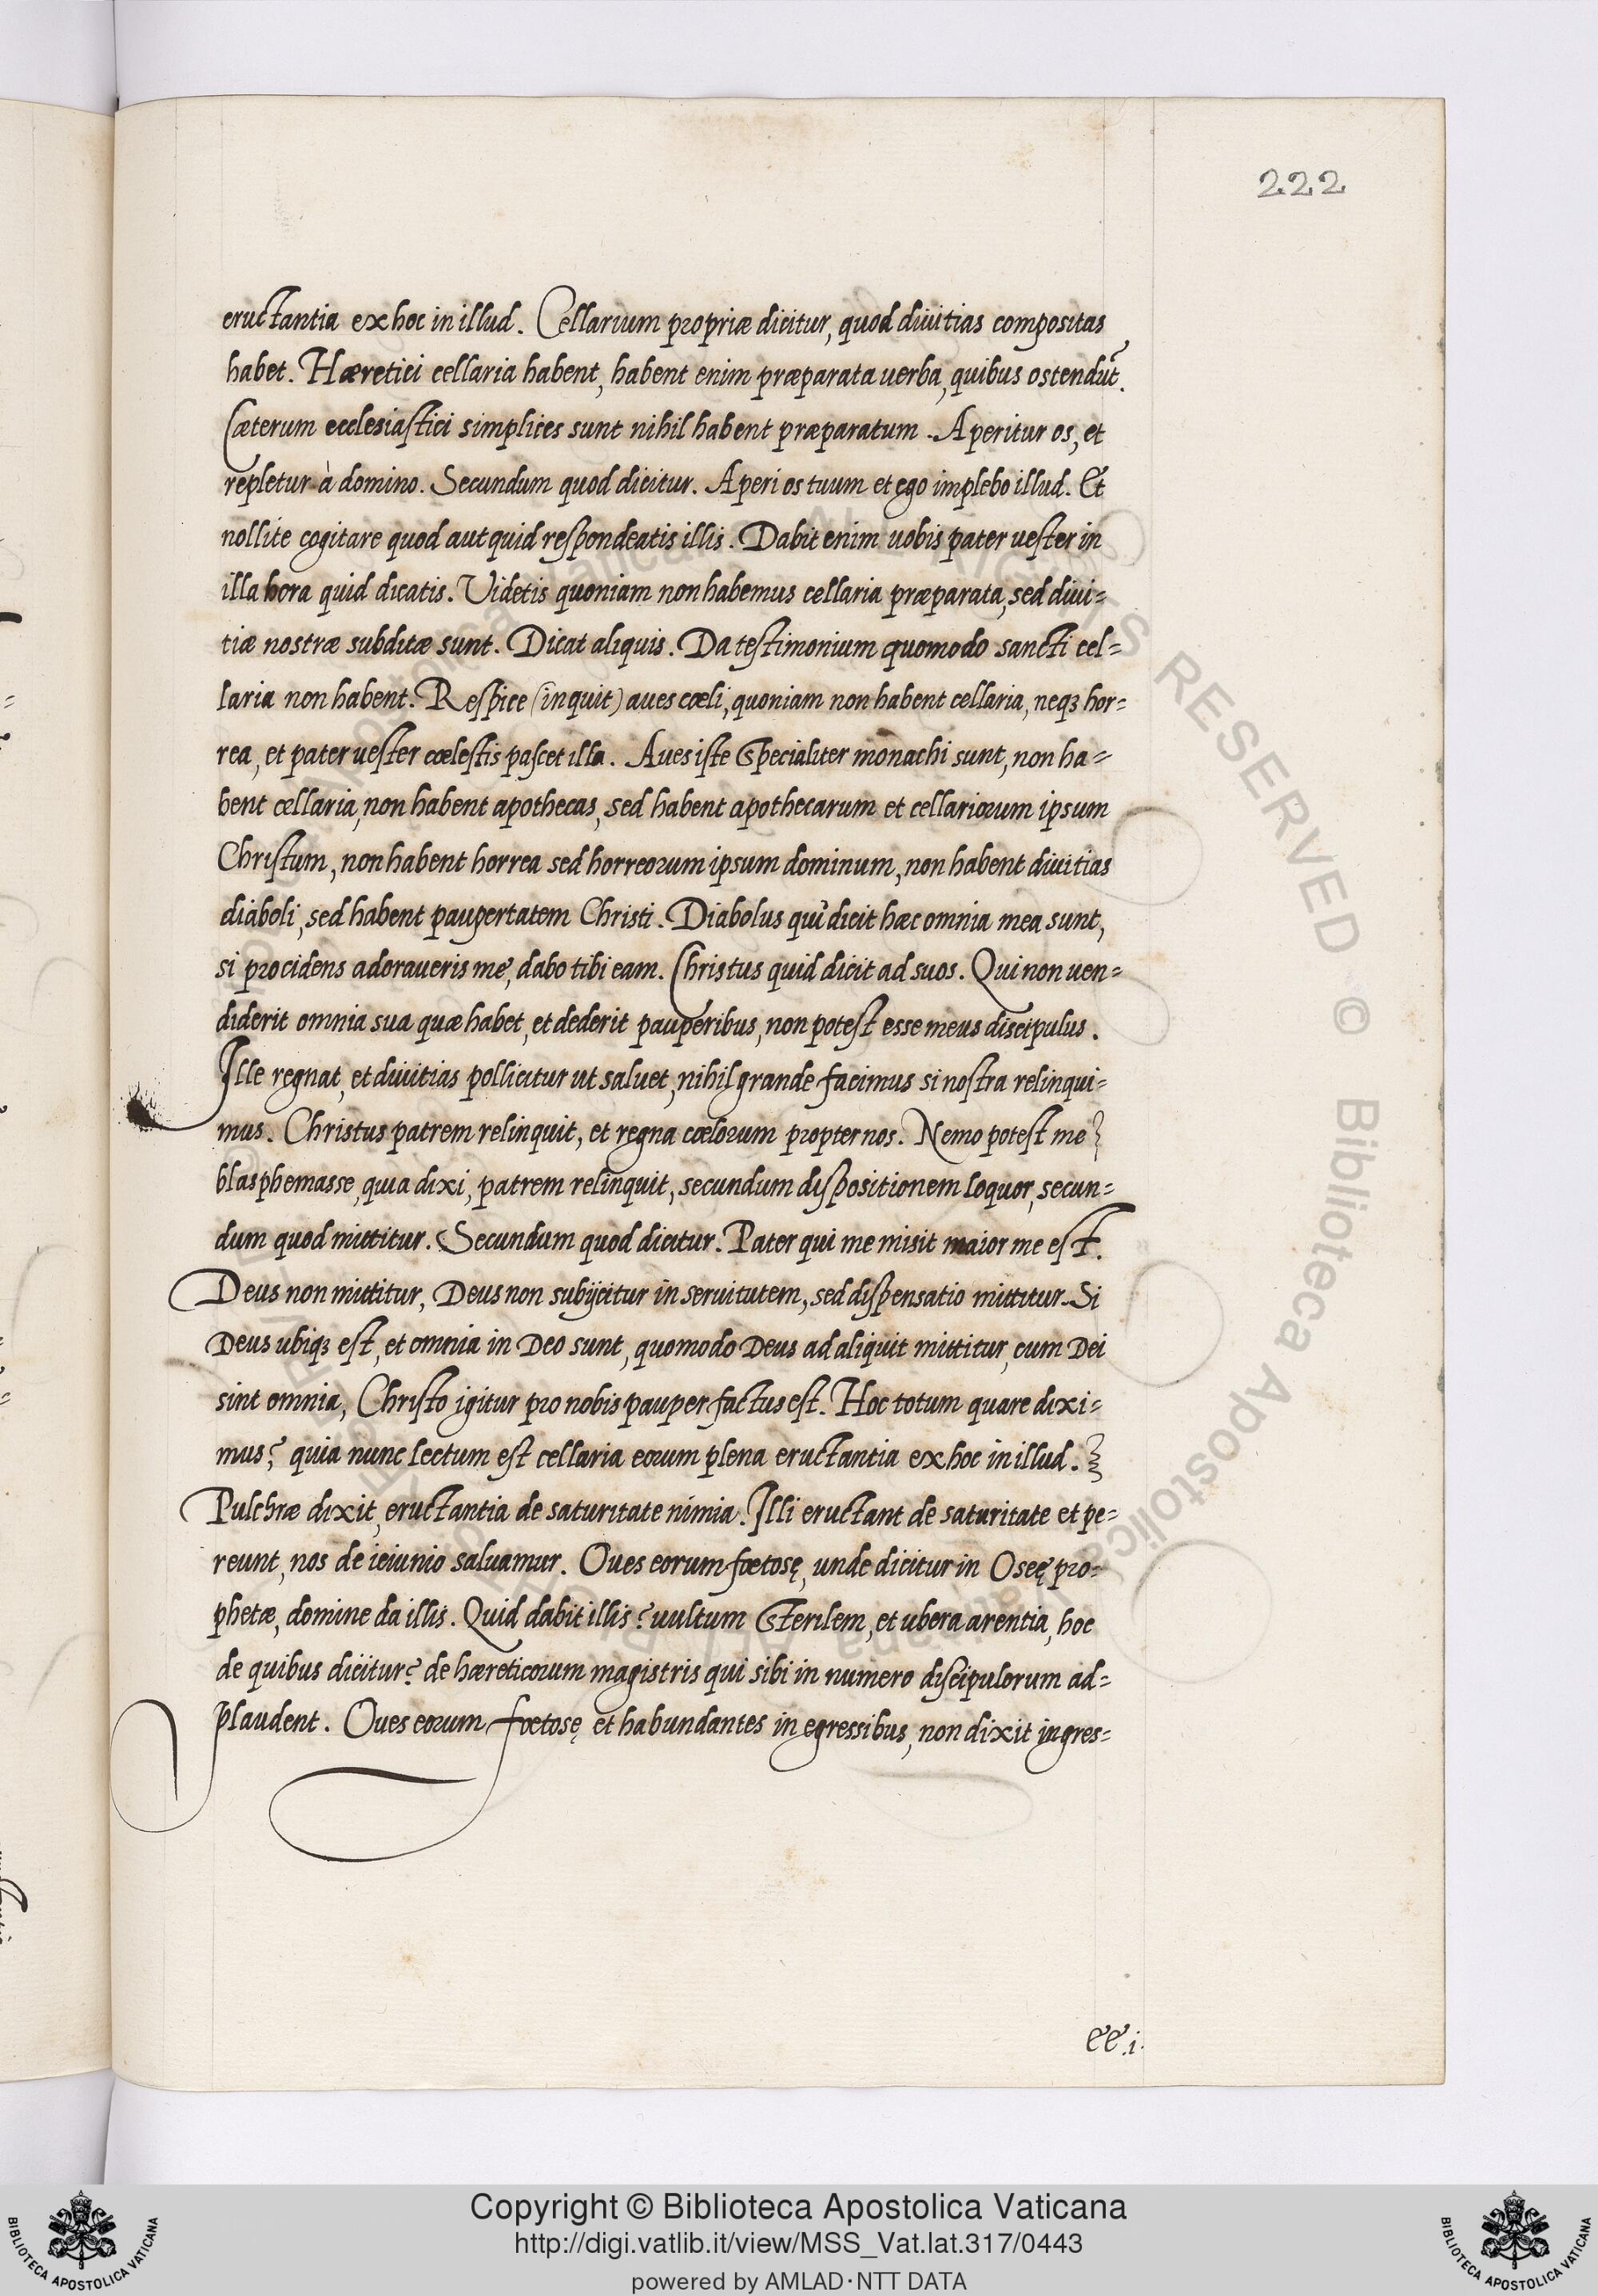 222
eructantia ex hoc in illud. Cellarium propriæ dicitur, quod diuitias compositas
habet. Hæretici cellaria habent, habent enim præparata uerba, quibus ostendũt.
Cæterum ecclesiastici simplices sunt nihil habent præparatum. Aperitur os, et
repletur à domino. Secundum quod dicitur. Aperi os tuum et ego implebo illud. Et
nollite cogitare quod aut quid respondeatis illis. Dabit enim uobis pater uester in
illa hora quid dicatis. Videtis quoniam non habemus cellaria præparata, sed diui=
tiæ nostræ subditæ sunt. Dicat aliquis. Da testimonium quomodo sancti cel=
laria non habent. Respice (inquit) aues cœli, quoniam non habent cellaria, neqꝫ hor=
rea, et pater uester cœlestis pascet illa. Aues iste specialiter monachi sunt, non ha=
bent cellaria, non habent apothecas, sed habent apothecarum et cellariorum ipsum
Christum, non habent horrea sed horreorum ipsum dominum, non habent diuitias
diaboli, sed habent paupertatem Christi. Diabolus qui dicit hæc omnia mea sunt,
si procidens adoraueris me, dabo tibi eam. Christus quid dicit ad suos. Qui non uen=
diderit omnia sua quæ habet, et dederit pauperibus, non potest esse meus discipulus.
Ille regnat, et diuitias pollicitur ut saluet, nihil grande facimus si nostra relinqui=
mus. Christus patrem relinquit, et regna cœlorum propter nos. Nemo potest me
blasphemasse, quia dixi, patrem relinquit, secundum dispositionem loquor, secun=
dum quod mittitur. Secundum quod dicitur. Pater qui me misit maior me est.
Deus non mittitur, Deus non subijcitur in seruitutem, sed dispensatio mittitur. Si
Deus ubiqꝫ est, et omnia in Deo sunt, quomodo Deus ad aliquit mittitur, cum Dei
sint omnia, Christo igitur pro nobis pauper factus est. Hoc totum quare dixi=
mus? quia nunc lectum est cellaria eorum plena eructantia ex hoc in illud.
Pulchræ dixit, eructantia de saturitate nimia. Illi eructant de saturitate et pe=
reunt, nos de ieiunio saluamur. Oues eorum fœtosę, unde dicitur in Oseę pro=
phetæ, domine da illis. Quid dabit illis? uultum sterilem, et ubera arentia, hoc
de quibus dicitur? de hæreticorum magistris qui sibi in numero discipulorum ad=
plaudent. Oues eorum fœtosę et habundantes in egressibus, non dixit ingres=
ee.i.
Copyright © Biblioteca Apostolica Vaticana
http://digi.vatlib.it/view/MSS_Vat.lat.317/0443
powered by AMLAD·NTT DATA
BIBLIOTECA APOSTOLICA VATICANA
BIBLIOTECA APOSTOLICA VATICANA